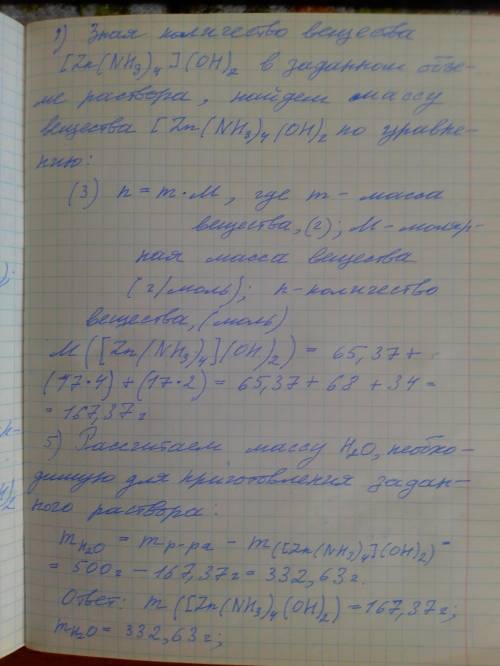 2) Зная количество вещества
[Zn(NH₃)₄](OH)₂ в заданном объе-
ме раствора, найдем массу
вещества [Zn(NH₃)₄(OH)₂ по уравне-
нию:
(3) n = m · M, где m - масса
вещества, (г); M - моляр-
ная масса вещества
(г/моль); n - количество
вещества, (моль)
M([Zn(NH₃)₄](OH)₂) = 65,37 +
(17·4) + (17·2) = 65,37 + 68 + 34 =
= 167,37 г
5) Рассчитаем массу H₂O, необхо-
димую для приготовления задан-
ного раствора:
m H₂O = m р-ра - m([Zn(NH₃)₄](OH)₂) =
= 500 г - 167,37 г = 332,63 г.
Ответ: m([Zn(NH₃)₄(OH)₂) = 167,37 г;
m H₂O = 332,63 г;